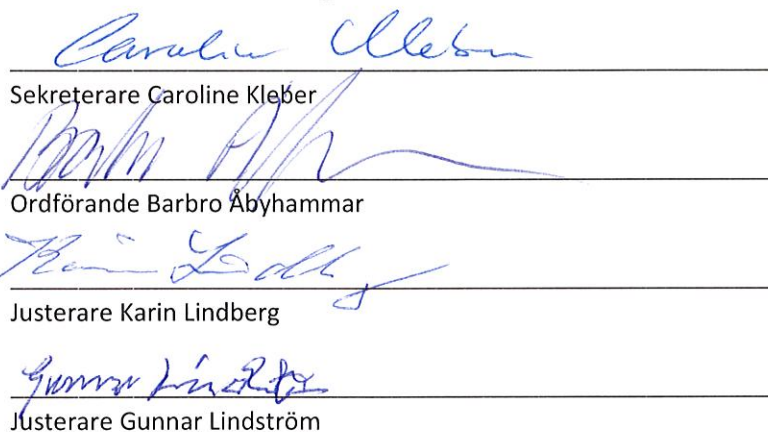 Caroline Kleber
Sekreterare Caroline Kleber
Ordförande Barbro Åbyhammar
Karin Lindberg
Justerare Karin Lindberg
Gunnar Lindström
Justerare Gunnar Lindström